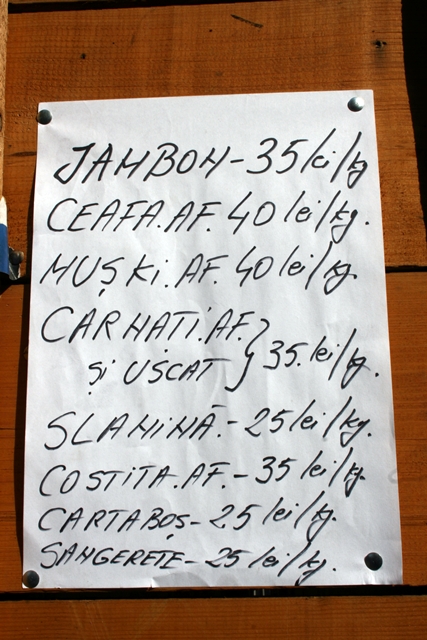 JAMBON - 35 lei/kg
CEAFA. AF. 40 lei/kg.
MUŞKi. AF. 40 lei/kg.
CARNAŢI. AF. } 35. lei/kg.
şi USCAT
SLANINĂ. - 25 lei/kg.
COSTITA. AF. - 35 lei/kg.
CARTABOŞ - 25 lei/kg.
SANGERETE - 25 lei/kg.